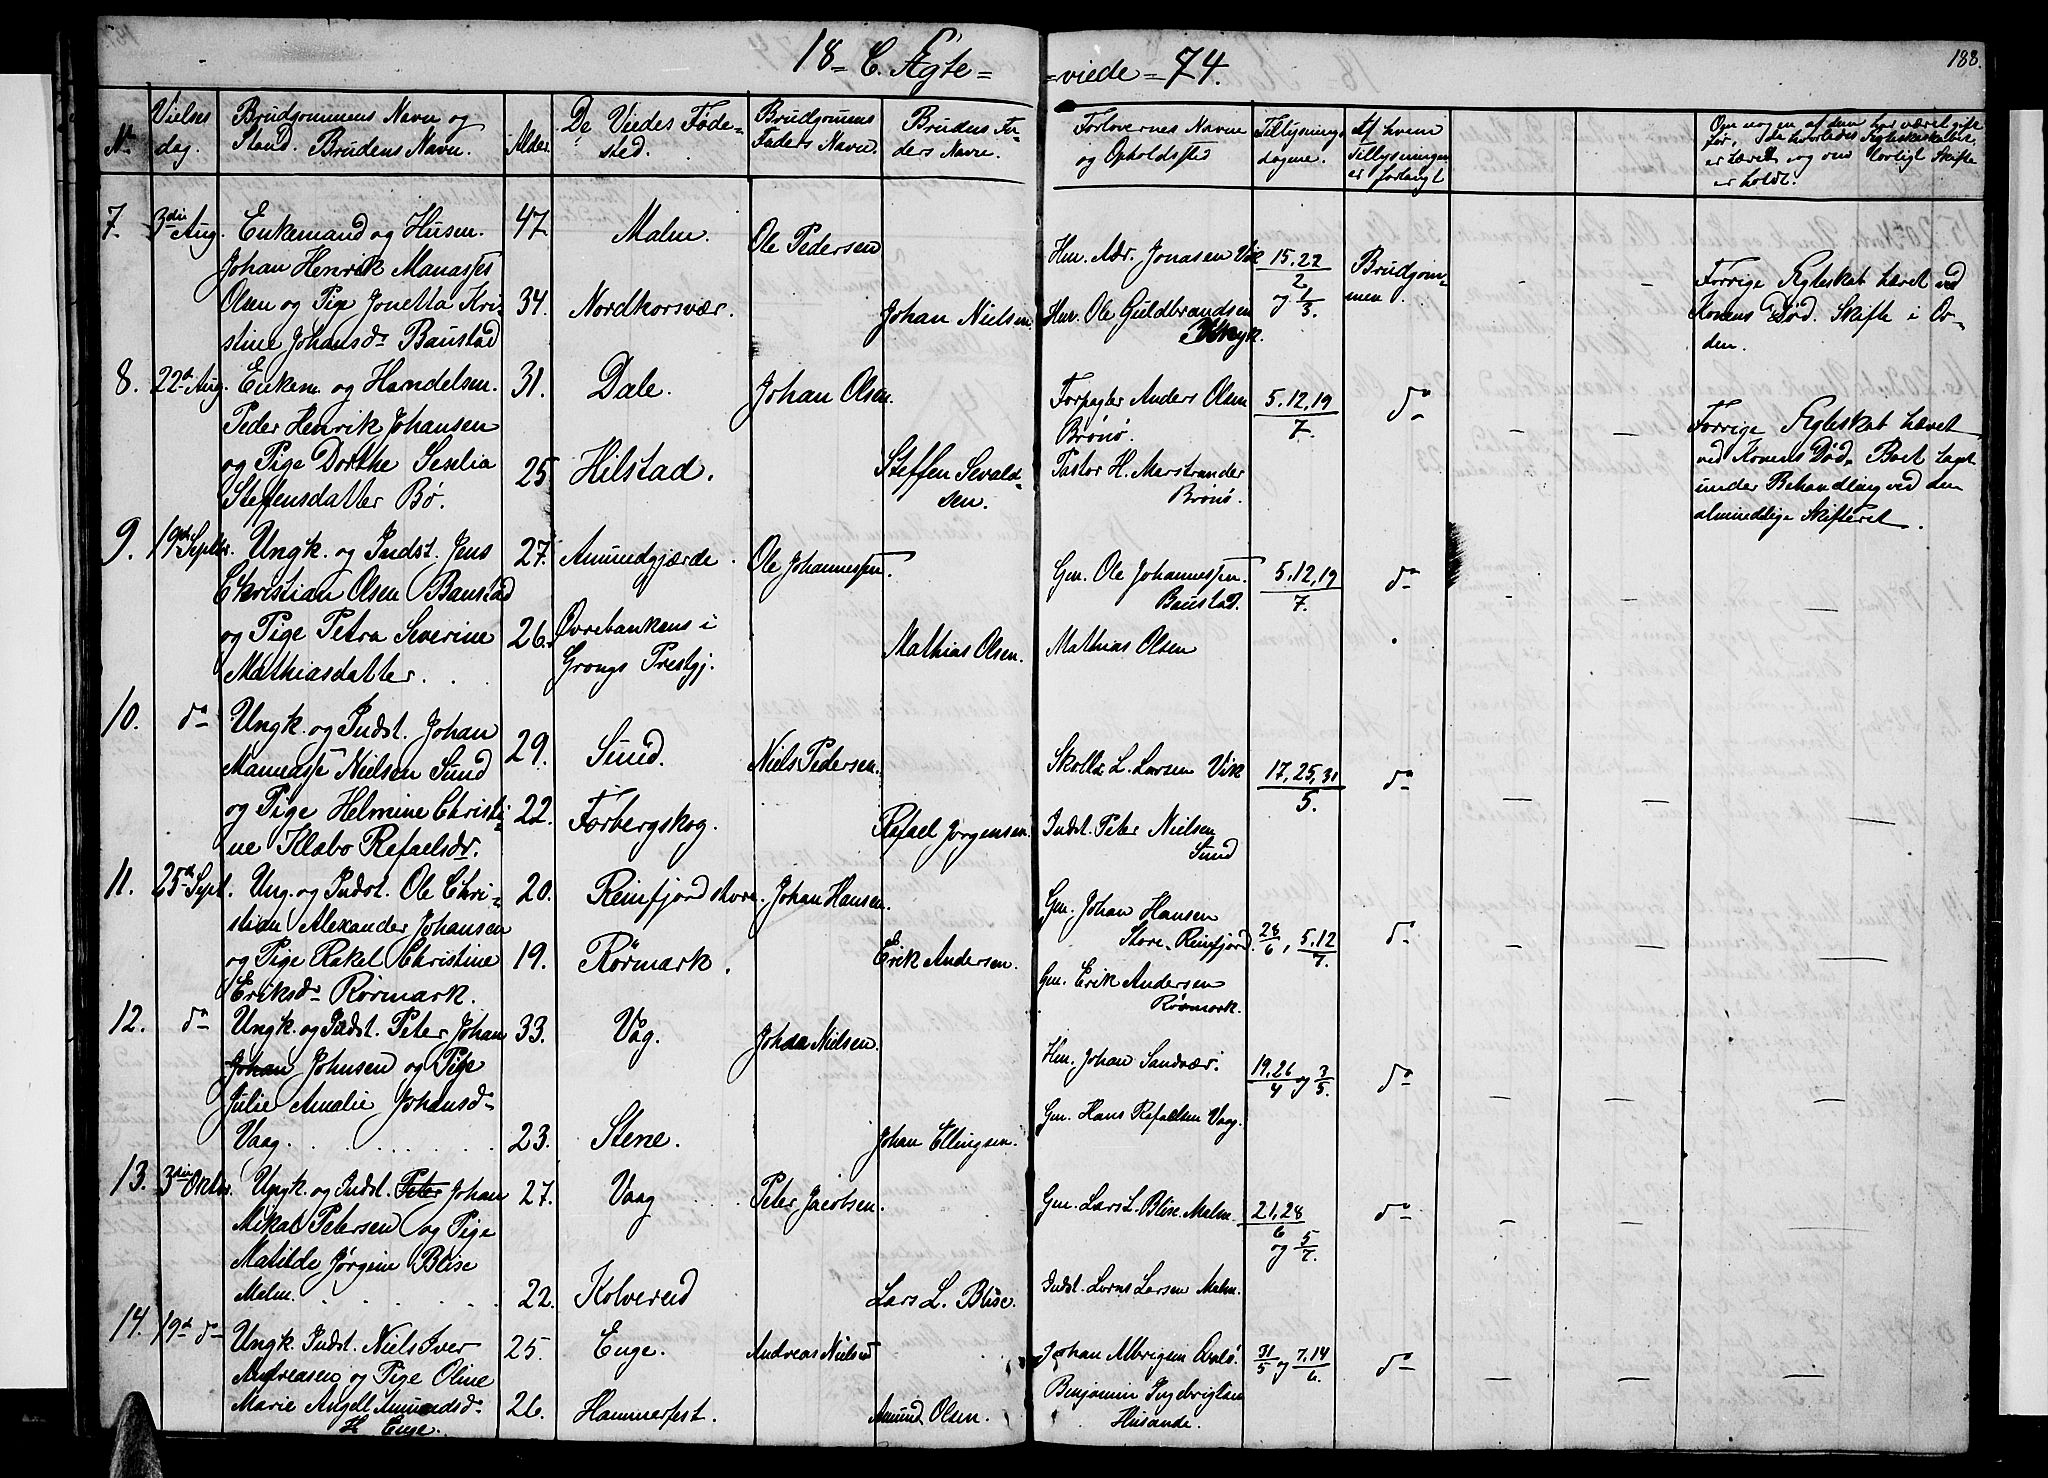 18 = C. Ægte = = viede = 74.
188.
No
Vielses dag.
Brudgommens Navn og Stand. Brudens Navn.
Alder.
De Viedes Fødested.
Brudgommens Faders Navn.
Brudens Faders Navn.
Forlovernes Navne og Opholdssted
Tillysningsdagene.
Af hvem Tillysningen er forlangt
Om nogen af dem har været gift før, da hvorledes Ægteskabet er hævet, og om lovligt Skifte er holdt.
7. 3die Aug. Enkemand og Husm. 47. Malm. Ole Pedersen
Johan Henrik Manasses
Olsen og Pige Jonetta Kri- 34. Nordkorsvær. Johan Nielsen.
stine Johansdr Baustad
Hm. Adr. Jonasen Vik 15.22/2 og 1/3. Brudgommen.
Hm. Ole Guldbrandsen
Forrige Ægteskab hævet ved
Konens Død. Skifte i Or-
den.
8. 22de Aug. Enkem. og Handelsm. 31. Dale. Johan Olsen.
Peder Henrik Johansen
og Pige Dorthe Seselia 25 Hilstad. Steffen Sevald-
Steffensdatter Bø. sen.
Forpagter Anders Olsen 5.12,19/7. do
Brønø.
Pastor H. Merstrander
Brønø.
Forrige Ægteskab hævet
ved Konens Død. Boet taget
under Behandling ved den
almindelige Skifteret.
9. 19de Septbr. Ungk. og Indst. Jens 27. Amundgjærde. Ole Johannessen.
Christian Olsen Baustad
og Pige Petra Severine 26. Øvrebankens i
Mathiasdatter. Grongs Prestgj. Mathias Olsen.
Gm. Ole Johannessen. 5.12,19/7. do
Baustad.
Mathias Olsen
10. do Ungk. og Indst. Johan 29. Sund. Niels Pedersen.
Mannasse Nielsen Sund
og Pige Helmine Christi- 22. Forbergskog. Rafael Jørgensen.
ne Klabo Refaelsdr.
Skoll. L. Larsen Vik 17,25,31/5. do
Indst. Peter Nielsen
Sund
11. 25de Sept. Ung. og Indst. Ole Chri- 20. Reinfjord store. Johan Hansen.
stian Alexander Johansen
og Pige Rakel Christine 19. Rørmark. Erik Andersen.
Eriksdr Rørmark.
Gm. Johan Hansen
Store-Reinfjord. 28/6, 5.12/7. do
Gm. Erik Andersen
Rørmark.
12. do Ungk. og Indst. Peter Johan 33. Våg. Johan Nielsen.
Johan Johnsen og Pige
Julie Amalie Johansd-
Vaag. 23. Stene. Johan Ellingsen.
Hm. Johan Sandvær. 19.26/4 og 3/5. do
Gm. Hans Rafaelsen Vaag.
13. 3die Oktbr. Ungk. og Indst. Peter Johan 27. Vaag Peter Jacobsen.
Mikal Petersen og Pige
Matilde Jørgine Blise
Malm. 22. Kolvereid Lars L. Blise.
Gm. Lars L. Blise. Malm. 21,28/6 og 5/7. do
Indst. Lorns Larsen Malm.
14. 19de do Ungk. Indst. Niels Iver 25. Enge. Andreas Nielsen
Andreasen og Pige Oline
Marie Angell Amundsdr 26. Hammerfest. Amund Olsen.
Enge.
Johan Albrigsen 31/5 og 7.14/6. do
Benjamin Ingebrigtsen
Husande.